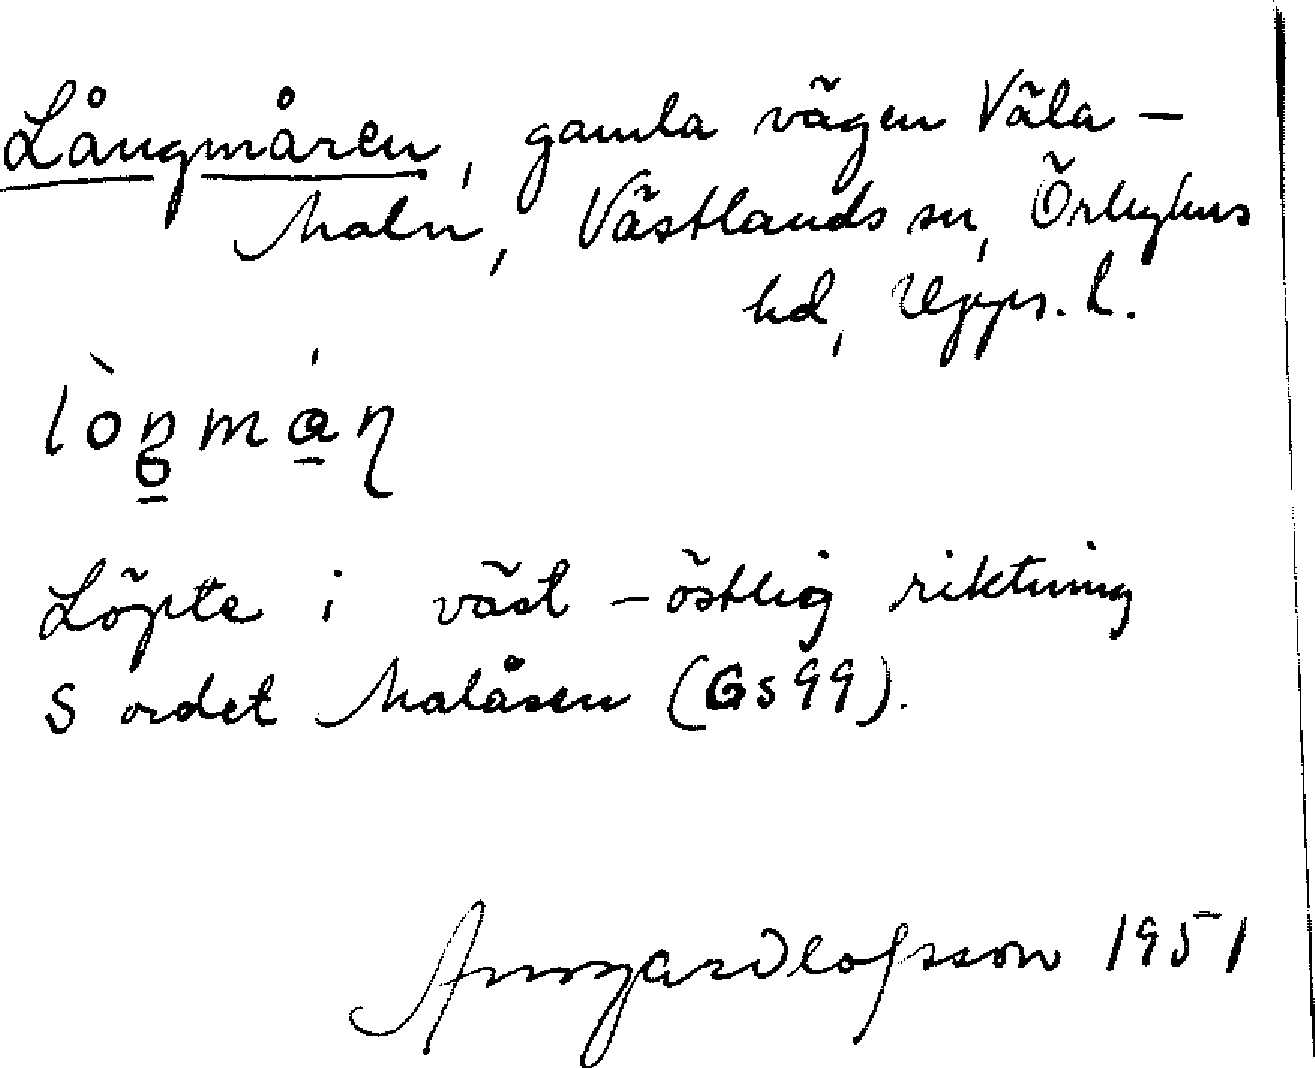 Långmåren, gamla vägen Väla –
Maln, Västlands sn, Örbyhus
hd, Upps. l.
Löpte i väst – östlig riktning
S ordet Malåsen (Gs 99).
Ansgar Olofsson 1951